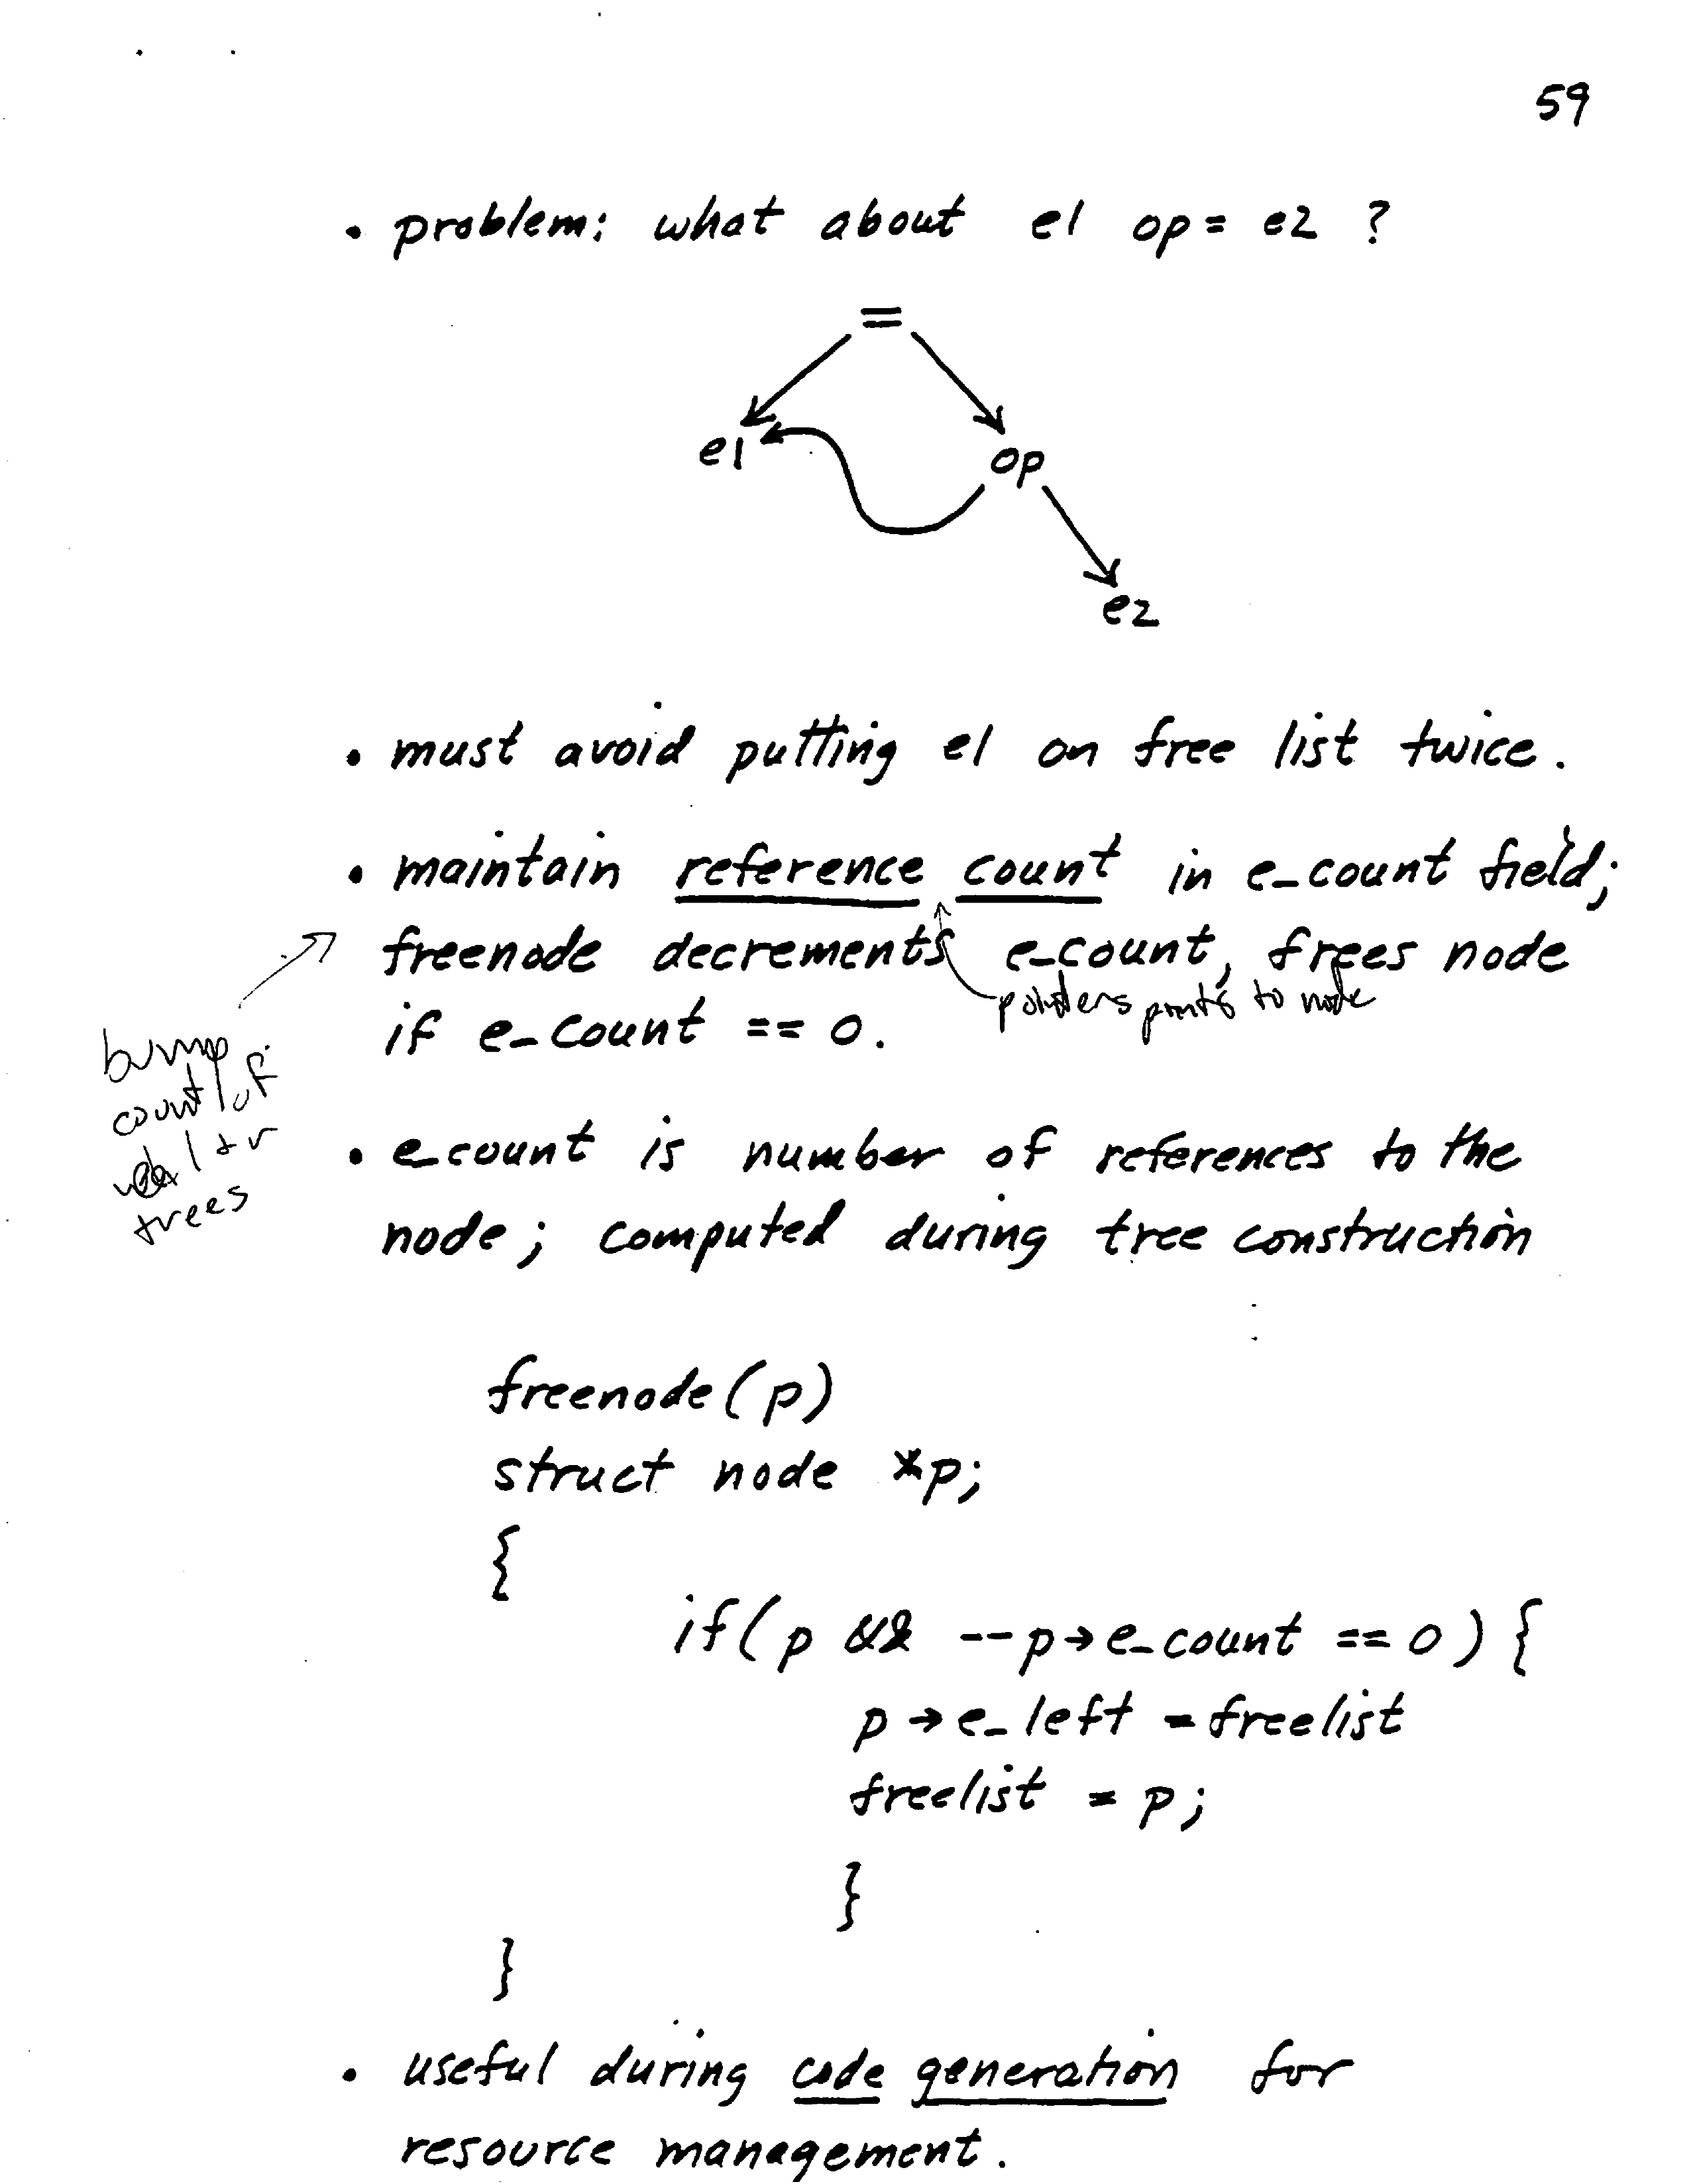 59
• problem: what about e1 op= e2 ?
=
e1
op
e2
• must avoid putting e1 on free list twice.
• maintain reference count in e_count field;
freenode decrements e_count, frees node
pointers to node
if e_count == 0.
bump
count of
l + r
trees
• e_count is number of references to the
node; computed during tree construction
freenode(p)
struct node *p;
{
if( p && --p→e_count == 0 ) {
p→e_left = freelist
freelist = p;
}
}
• useful during code generation for
resource management.